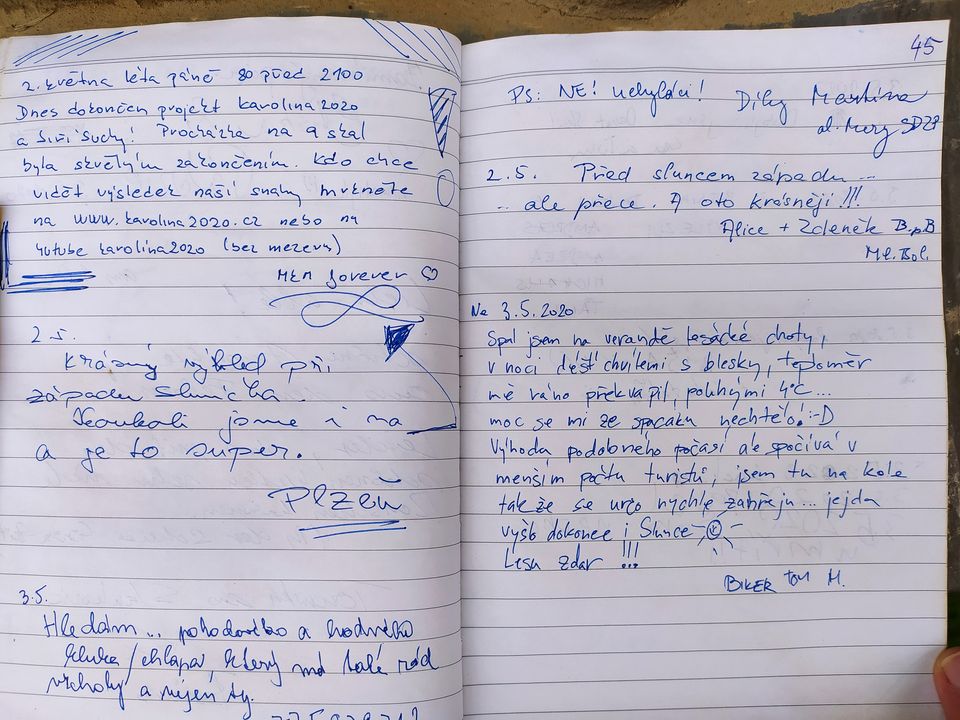 2. května léta páně 80 před 2100
Dnes dokončen projekt karolina2020
a širší suchý! Procházka na 9 skal
byla skvělým zakončením. Kdo chce
vidět výsledek naší snahy mrkněte
na www.karolina2020.cz nebo na
Youtube karolina2020 (bez mezery)
M&M forever ♡
2 5.
Krásný výhled při
západu sluníčka.
Koukali jsme i na
a je to super.
Plzeň
3.5.
Hledám... pohodového a hodného
kluka/chlapa který má také rád
vrcholy a nejen ty.
45
PS: NE! úchyláci! Díky Martina
2.5. Před sluncem západu ...
... ale přece. A oto krásněji !!!
Alice + Zdeněk B.pB
Ml.Bol.
Ne 3.5.2020
Spal jsem na verandě lezácké chaty,
v noci déšť chvílemi s blesky, teploměr
mě ráno překvapil, pouhými 4°C...
moc se mi ze spacáku nechtělo! :-D
Výhoda podobného počasí ale spočívá v
menším počtu turistů, jsem tu na kole
takže se určo rychle zahřeju... jejda
vyšlo dokonce i Slunce
Lesu zdar !!!
BIKER TOM M.